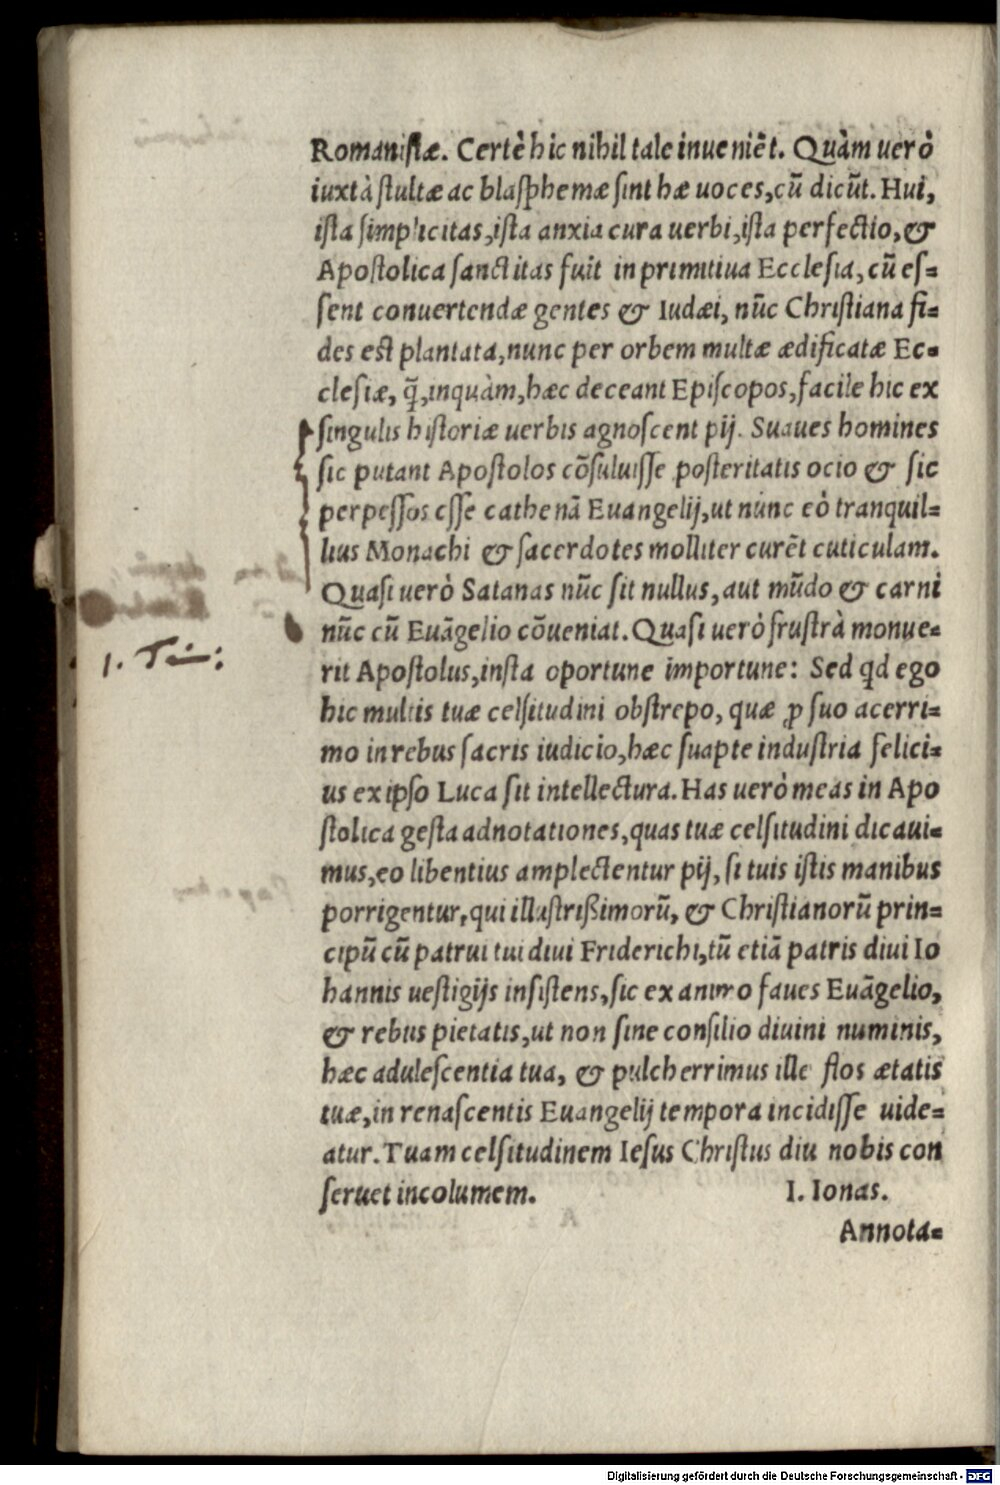 Romanistæ. Certè hic nihil tale inueniẽt. Quàm uerò
iuxtà stultæ ac blasphemæ sint hæ uoces, cũ dicũt. Hui,
ista simplicitas, ista anxia cura uerbi, ista perfectio, &
Apostolica sanctitas fuit in primitiua Ecclesia, cũ es=
sent conuertendæ gentes & Iudæi, nũc Christiana fi=
des est plantata, nunc per orbem multæ ædificatæ Ec=
clesiæ, q̃, inquàm, hæc deceant Episcopos, facile hic ex
singulis historiæ uerbis agnoscent pij. Suaues homines
sic putant Apostolos cõsuluisse posteritatis ocio & sic
perpessos esse cathenã Euangelij, ut nunc eò tranquil=
lius Monachi & sacerdotes molliter curẽt cuticulam.
Quasi uerò Satanas nũc sit nullus, aut mũdo & carni
nũc cũ Euãgelio cõueniat. Quasi uerò frustrà monue=
1. Tim:
rit Apostolus, insta oportune importune: Sed qd ego
hic multis tuæ celsitudini obstrepo, quæ ꝓ suo acerri=
mo in rebus sacris iudicio, hæc suapte industria felici=
us ex ipso Luca sit intellectura. Has uerò meas in Apo
stolica gesta adnotationes, quas tuæ celsitudini dicaui=
mus, eo libentius amplectentur pij, si tuis istis manibus
porrigentur, qui illustrißimorũ, & Christianorũ prin=
cipũ cũ patrui tui diui Friderichi, tũ etiã patris diui Io
hannis uestigijs insistens, sic ex animo faues Euãgelio,
& rebus pietatis, ut non sine consilio diuini numinis,
hæc adulescentia tua, & pulcherrimus ille flos ætatis
tuæ, in renascentis Euangelij tempora incidisse uide=
atur. Tuam celsitudinem Iesus Christus diu nobis con
seruet incolumem. I. Ionas.
Annota=
Digitalisierung gefördert durch die Deutsche Forschungsgemeinschaft - DFG